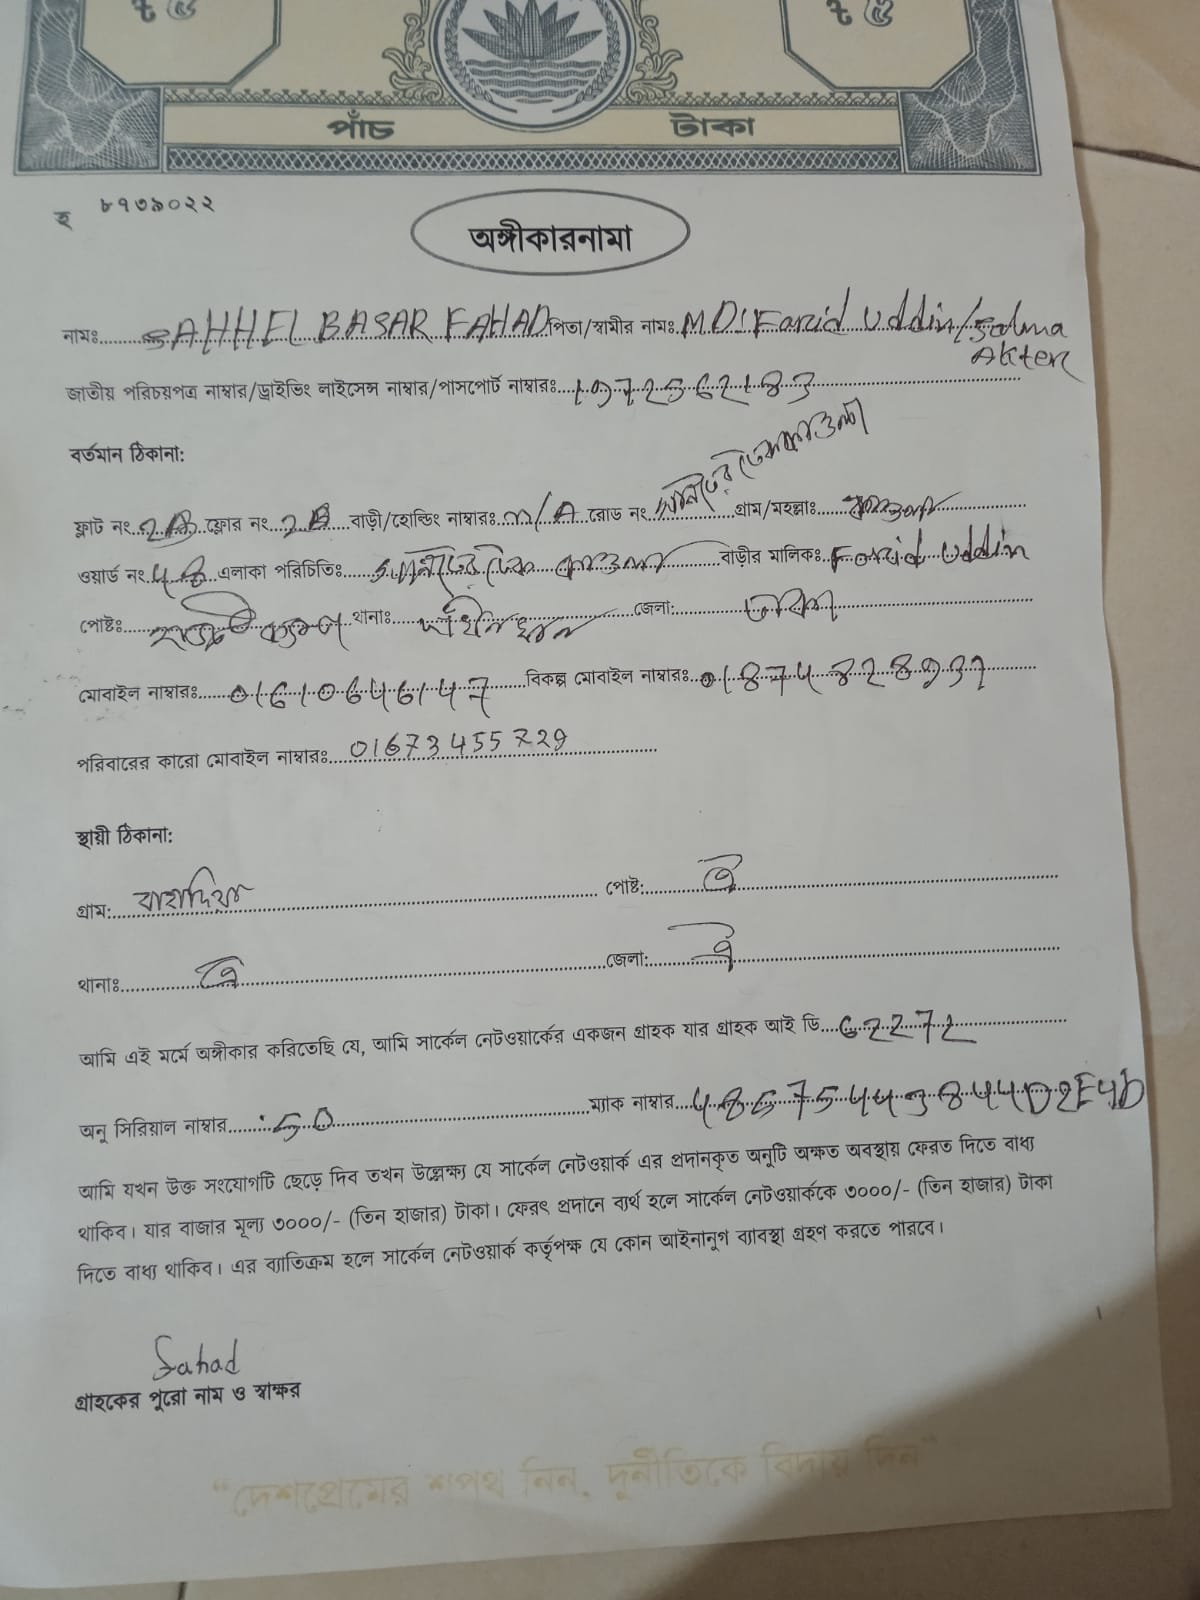 ৳ ৫ ৳ ৫
পাঁচ টাকা
হ ৮৭৩৯০২২
অঙ্গীকারনামা
নামঃ SAHHEL BASAR FAHAD পিতা/স্বামীর নামঃ MD: Farid Uddin/Salma
Akter
জাতীয় পরিচয়পত্র নাম্বার/ড্রাইভিং লাইসেন্স নাম্বার/পাসপোর্ট নাম্বারঃ
বর্তমান ঠিকানা:
ফ্লাট নং 2B ফ্লোর নং 2B বাড়ী/হোল্ডিং নাম্বারঃ N/A রোড নং গ্রাম/মহল্লাঃ কাওলা
ওয়ার্ড নং এলাকা পরিচিতিঃ কাওলা বাড়ীর মালিকঃ Farid Uddin
পোষ্টঃ থানাঃ দক্ষিনখান জেলা: ঢাকা
মোবাইল নাম্বারঃ 01610646147 বিকল্প মোবাইল নাম্বারঃ
পরিবারের কারো মোবাইল নাম্বারঃ 01673455729
স্থায়ী ঠিকানা:
গ্রাম: পোষ্ট: ঐ
থানাঃ ঐ জেলা: ঐ
আমি এই মর্মে অঙ্গীকার করিতেছি যে, আমি সার্কেল নেটওয়ার্কের একজন গ্রাহক যার গ্রাহক আই ডি 62272
অনু সিরিয়াল নাম্বার ম্যাক নাম্বার
আমি যখন উক্ত সংযোগটি ছেড়ে দিব তখন উল্লেক্ষ্য যে সার্কেল নেটওয়ার্ক এর প্রদানকৃত অনুটি অক্ষত অবস্থায় ফেরত দিতে বাধ্য
থাকিব। যার বাজার মূল্য ৩০০০/- (তিন হাজার) টাকা। ফেরৎ প্রদানে ব্যর্থ হলে সার্কেল নেটওয়ার্ককে ৩০০০/- (তিন হাজার) টাকা
দিতে বাধ্য থাকিব। এর ব্যাতিক্রম হলে সার্কেল নেটওয়ার্ক কর্তৃপক্ষ যে কোন আইনানুগ ব্যাবস্থা গ্রহণ করতে পারবে।
Fahad
গ্রাহকের পুরো নাম ও স্বাক্ষর
“দেশপ্রেমের শপথ নিন, দুর্নীতিকে বিদায় দিন”